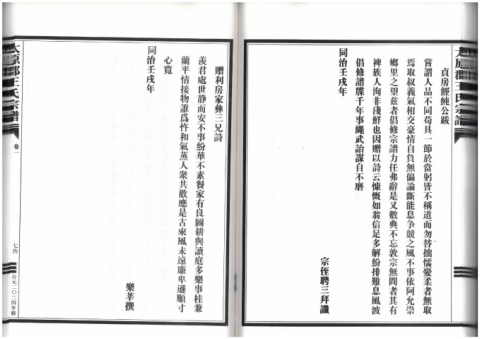 太原郡王氏宗譜
貞房經純公跋
嘗謂人品不同苟具一節於當躬皆不稱道而勿替擩懦憂柔者無取
焉取叔義氣相交豪情自負無偏論斷能息爭競之風不事依阿允崇
鄉里之望茲者倡修宗譜力任弗辭是又數典不忘敦宗無間者其有
裨族人洵非淺鮮也因贈以詩云慷慨如翁信足多解紛排難息風波
倡修譜牒千年事繩武詒謀自不磨
宗侄聘三拜識
同治壬戌年
贈利房家彝三兄詩
羨君處世靜而安不事紛華不素餐家有良圖耕與讀庭多樂事桂兼
蘭平情接物誰為忤和氣蒸人衆共歡應是古來風未遠廉卑遜順寸
心寬
樂莘撰
同治壬戌年
太原郡王氏宗譜
卷一
七四